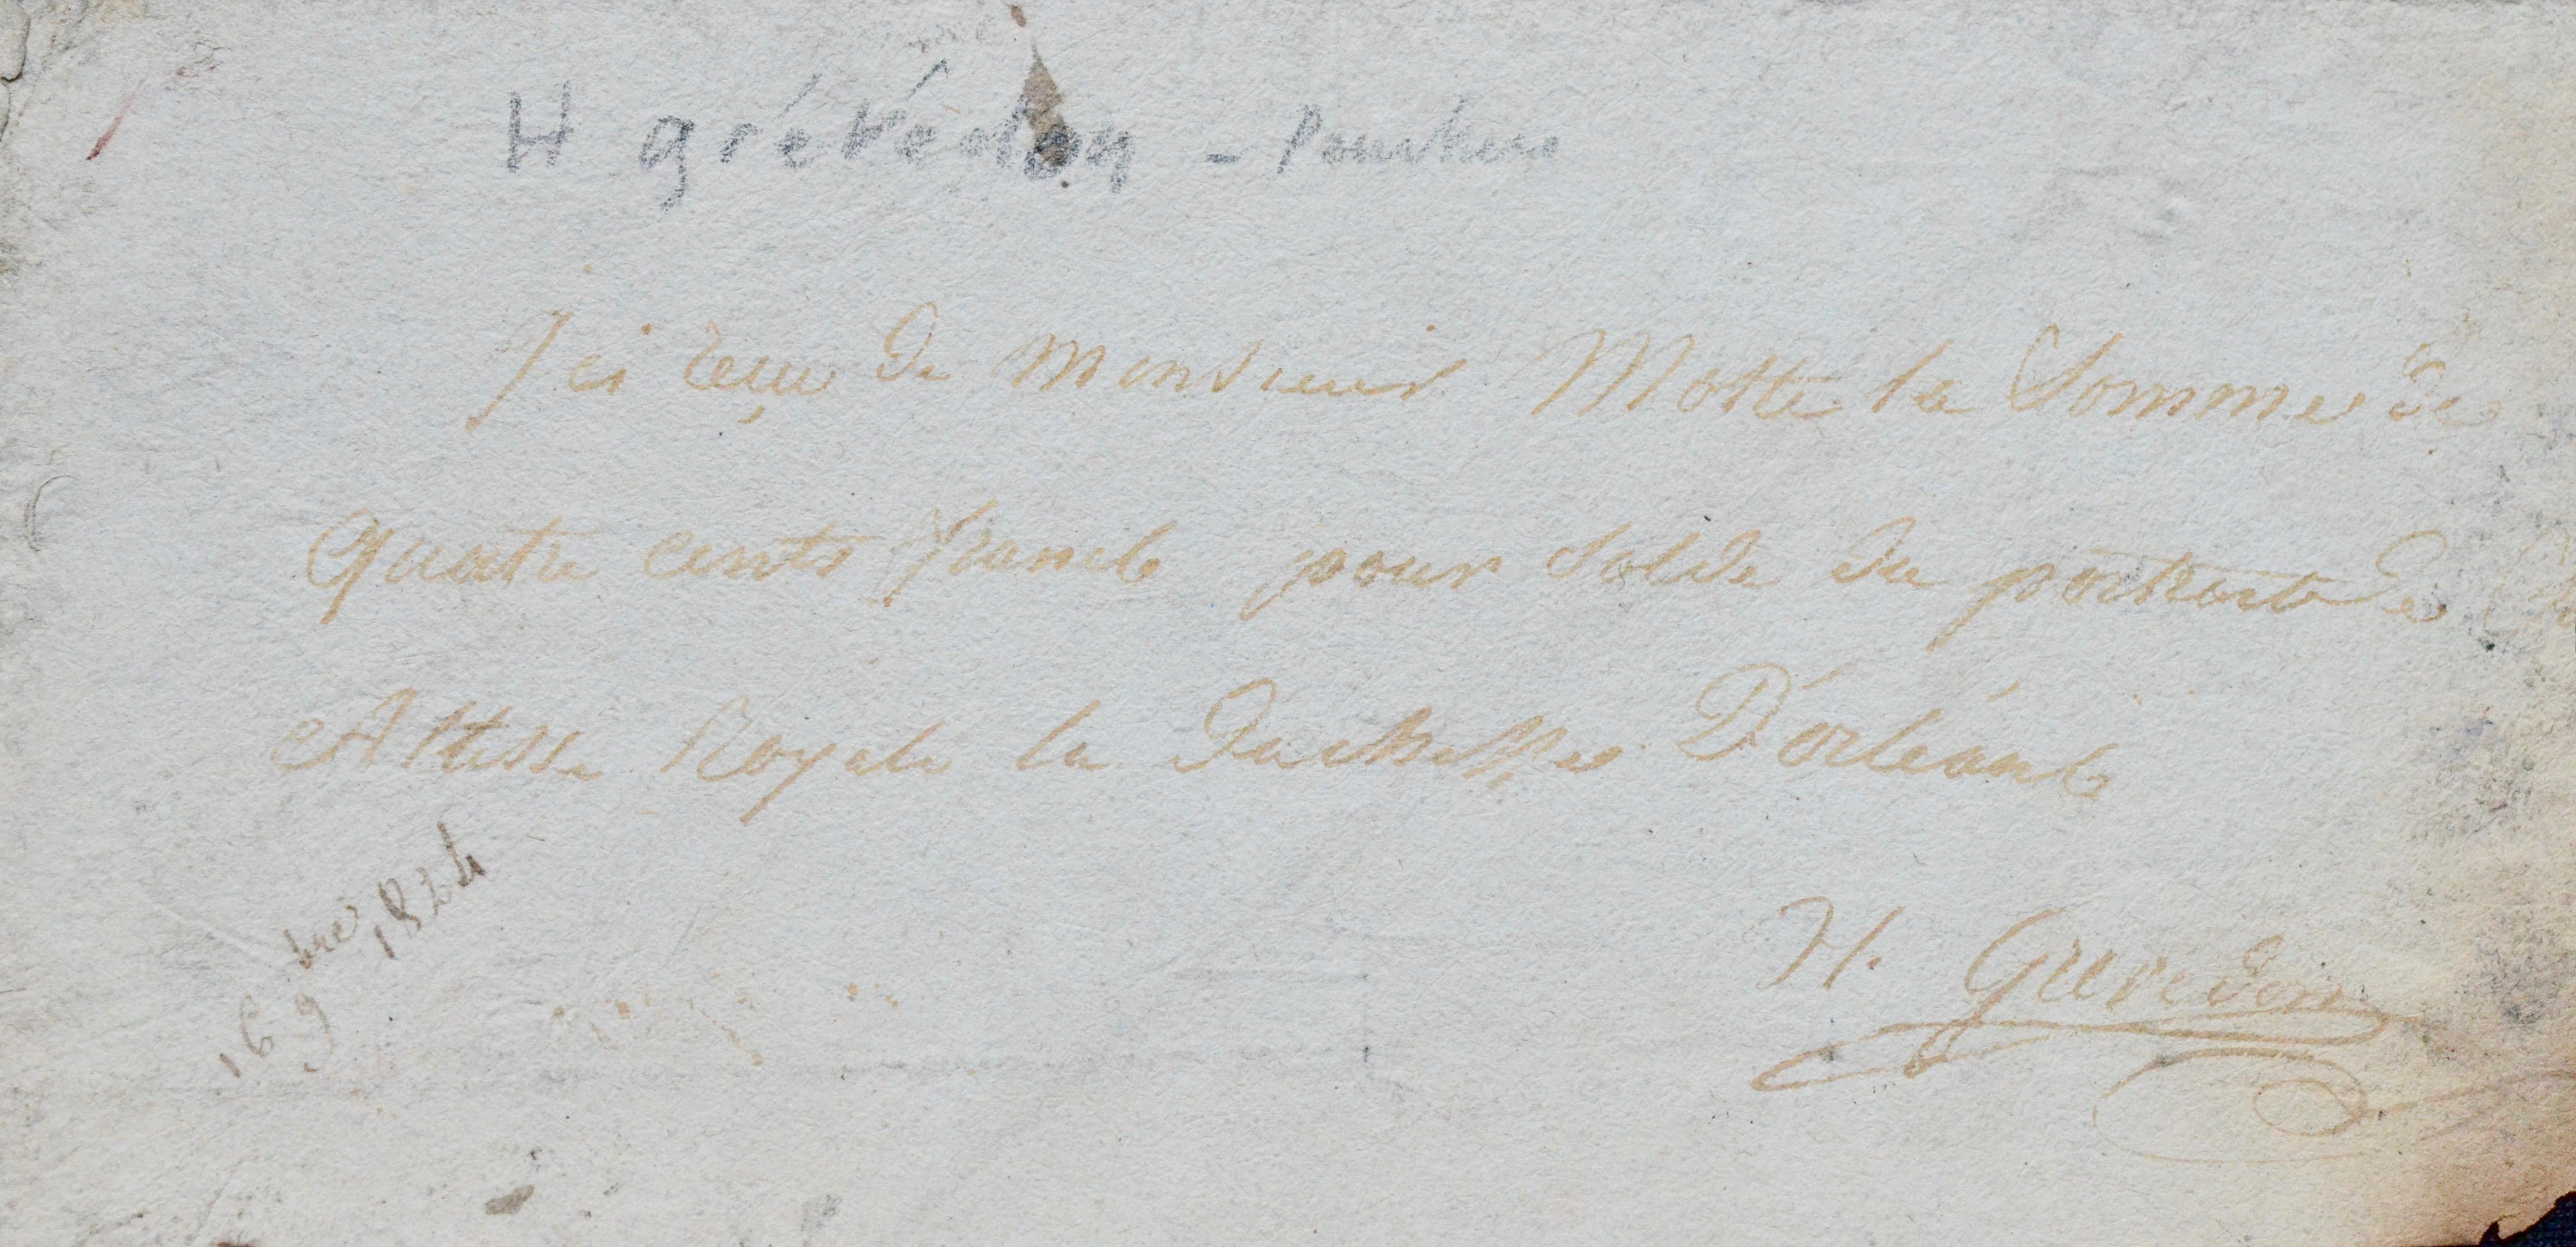 H grévedon -
J'ai reçu de Monsieur Motte la Somme de
quatre cents francs pour solde du portrait de
Altesse Royale la Duchesse D'orléans
16 9bre 1824
H. Grevedon